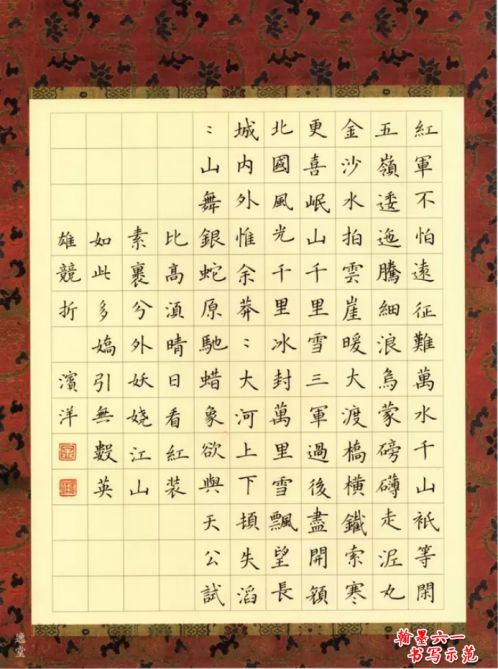 紅軍不怕遠征難萬水千山衹等閑
五嶺逶迤騰細浪烏蒙磅礴走泥丸
金沙水拍雲崖暖大渡橋橫鐵索寒
更喜岷山千里雪三軍過後盡開顏
北國風光千里冰封萬里雪飄望長
城內外惟余莽〻大河上下頓失滔
〻山舞銀蛇原馳蜡象欲與天公試
比高湏晴日看紅裝
素裹兮外妖嬈江山
如此多嬌引無數英
雄競折 濱洋
翰墨六一
书写示范